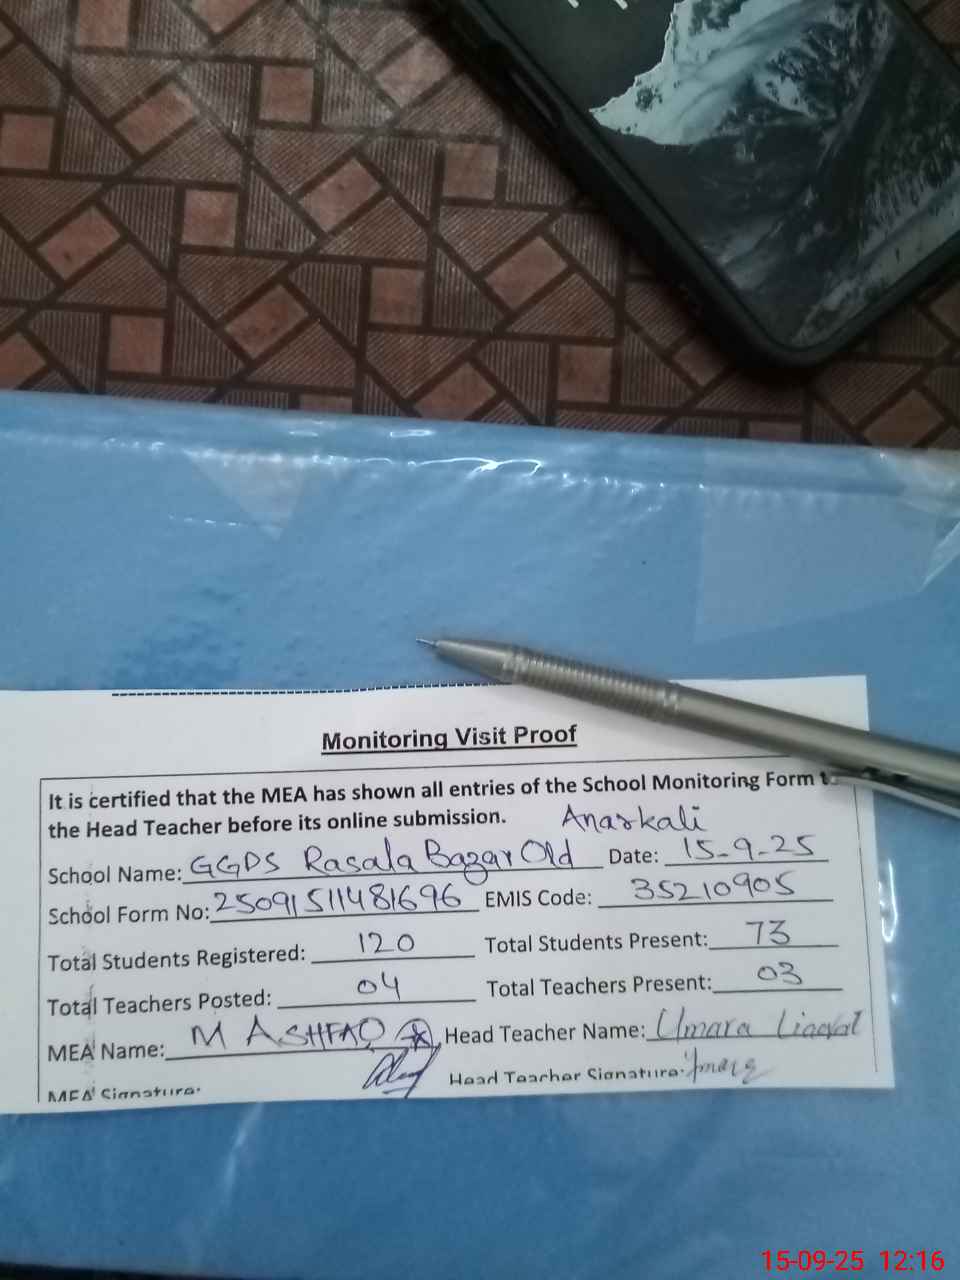 Monitoring Visit Proof
It is certified that the MEA has shown all entries of the School Monitoring Form to
the Head Teacher before its online submission.
Anarkali
School Name: GGPS Rasala Bazar Old Date: 15-9-25
School Form No: 25091511481696 EMIS Code: 35210905
Total Students Registered: 120 Total Students Present: 73
Total Teachers Posted: 04 Total Teachers Present: 03
MEA Name: M ASHFAQ Head Teacher Name: Umara Liaqat
MEA Signature: Head Teacher Signature:
15-09-25 12:16